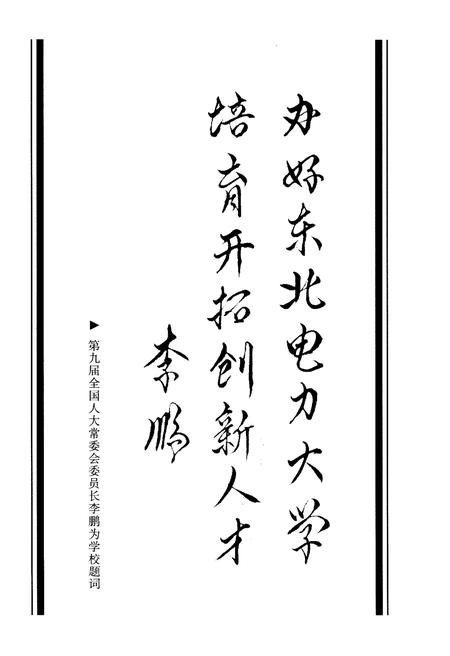 办好东北电力大学
培育开拓创新人才
李鹏
▶第九届全国人大常委会委员长李鹏为学校题词